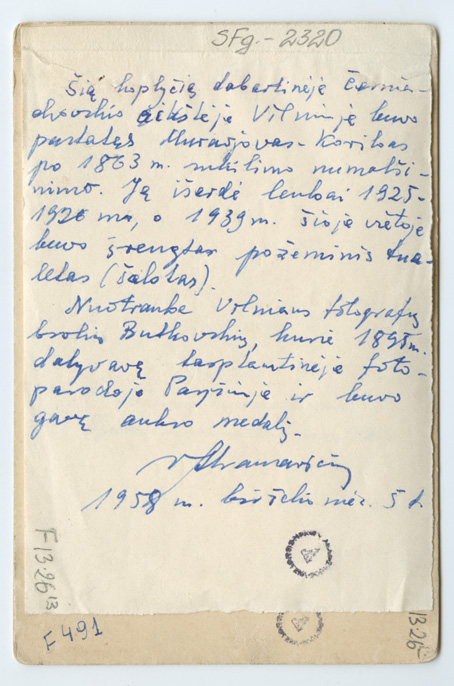 SFg.-2320
Šią koplyčią dabartinėje Černia-
chovskio aikštėje Vilniuje buvo
pastatęs Muravjovas-Korikas
po 1863 m. sukilimo numalši-
nimo. Ją išardė lenkai 1925-
1926 m., o 1939 m. šioje vietoje
buvo įrengtas požeminis tua-
letas (šaltas).
Nuotrauka Vilniaus fotografų
brolių Butkovskių, kurie 1895 m.
dalyvavę tarptautinėje foto-
parodoje Paryžiuje ir buvo
gavę aukso medalį.
1958 m. birželio mėn. 5 d.
F13-26 13
F 491
13-26